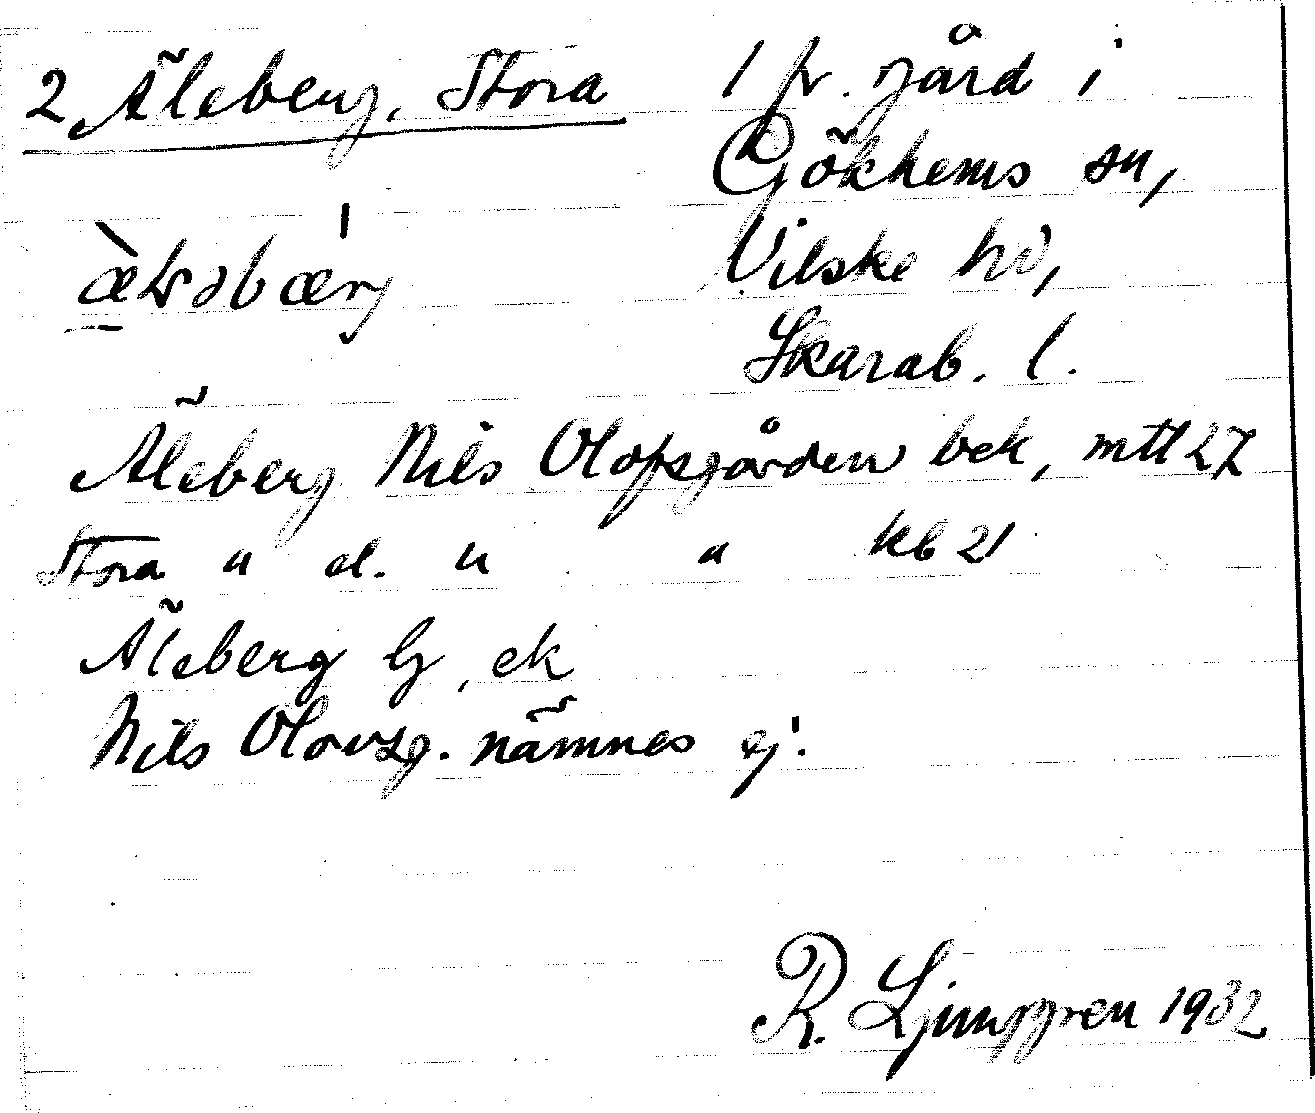 2 Äleberg, Stora
1 fr. gård i
Gökhems sn,
Vilske hd,
Skarab. l.
Äleberg Nils Olofsgården bek, mtl 27
Stora " el. " " kb 21
Äleberg G, ek
Nils Olovsg. nämnes ej.
R. Ljunggren 1932